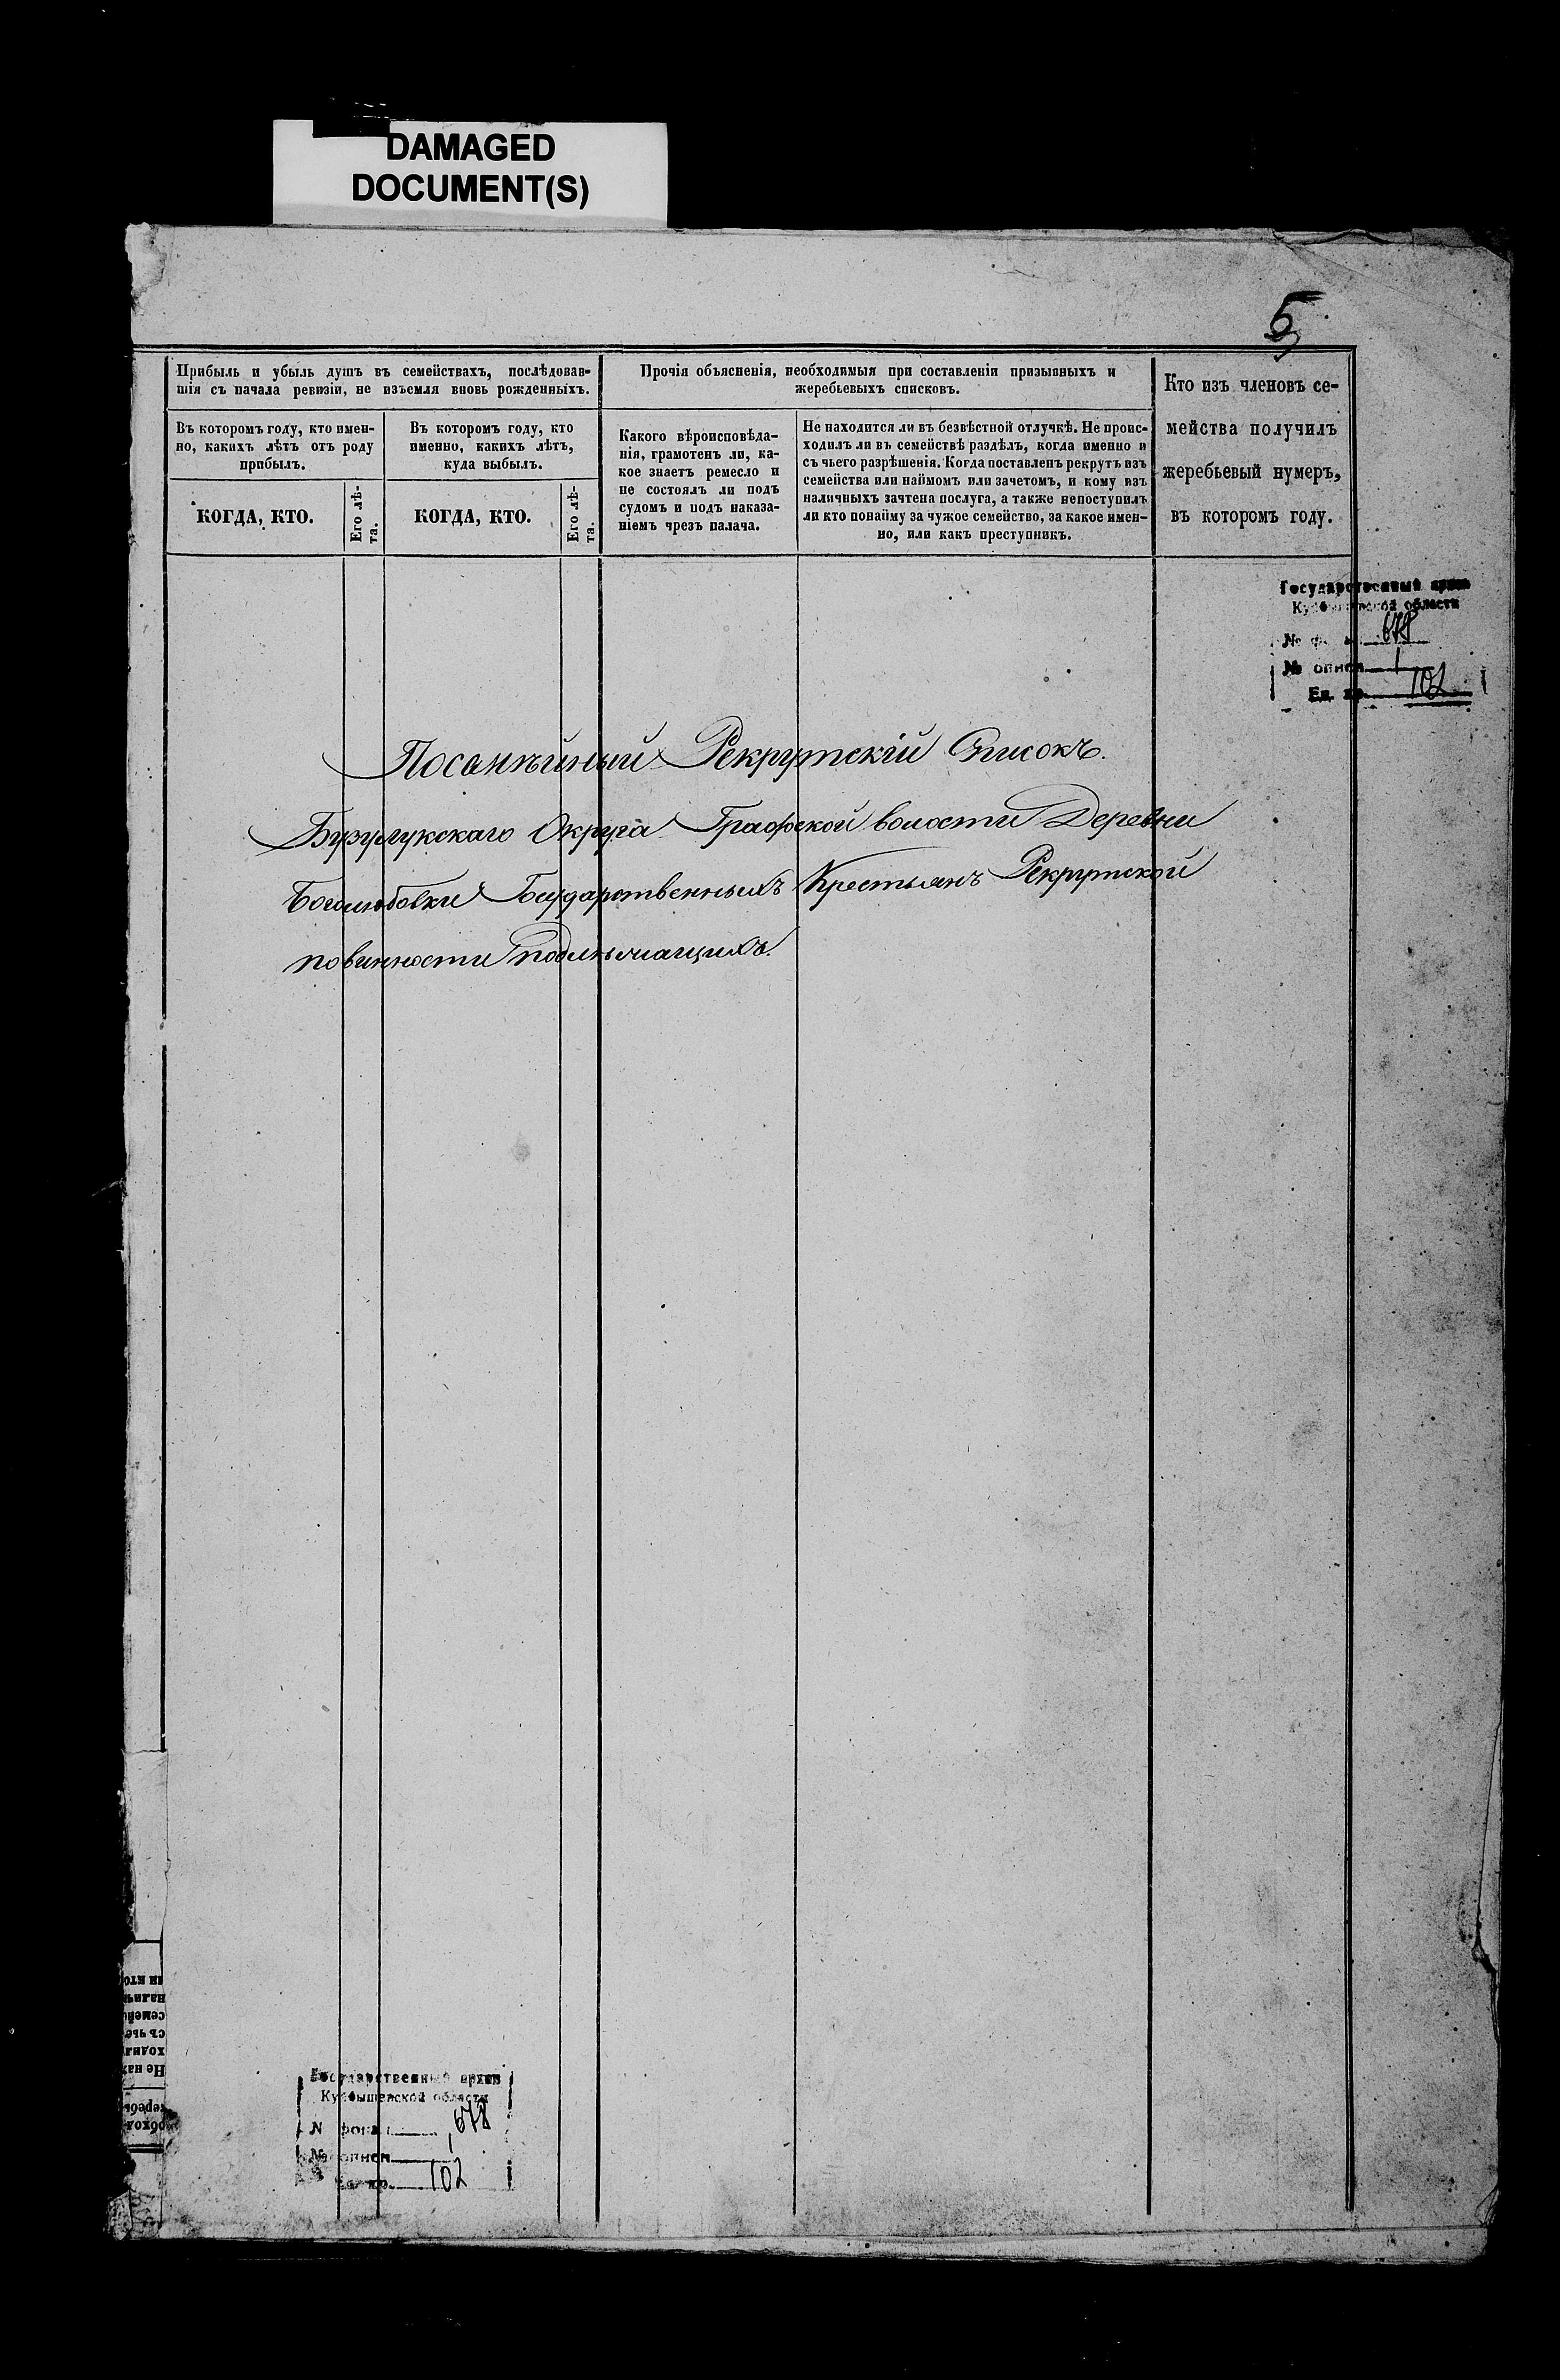 DAMAGED
DOCUMENT(S)
5
Прибыль и убыль душъ въ семействахъ, послѣдовав-
шія съ начала ревизіи, не изъемля вновь рожденныхъ.
Въ которомъ году, кто имен-
но, какихъ лѣтъ отъ роду
прибылъ.
Въ которомъ году, кто
именно, какихъ лѣтъ,
куда выбылъ.
КОГДА, КТО.
Его лѣ-
та.
КОГДА, КТО.
Его лѣ-
та.
Прочія объясненія, необходимыя при составленіи призывныхъ и
жеребьевыхъ списковъ.
Какого вѣроисповѣда-
нія, грамотенъ ли, ка-
кое знаетъ ремесло и
не состоялъ ли подъ
судомъ и подъ наказа-
ніемъ чрезъ палача.
Не находится ли въ безвѣстной отлучкѣ. Не проис-
ходилъ ли въ семействѣ раздѣлъ, когда именно и
съ чьего разрѣшенія. Когда поставленъ рекрутъ изъ
семейства или наймомъ или зачетомъ, и кому изъ
наличныхъ зачтена послуга, а также непоступилъ
ли кто понайму за чужое семейство, за какое имен-
но, или какъ преступникъ.
Кто изъ членовъ се-
мейства получилъ
жеребьевый нумеръ,
въ которомъ году.
Государственный архив
Куйбышевской области
№ фонда 678
№ описи 1
Ед. хр. 102
Посемѣйный Рекрутскій Списокъ.
Бузулукскаго Округа Графской волости Деревни
Боголюбовки Государственныхъ Крестьянъ Рекрутской
повинности подлѣжащихъ.
ли кто
налич
семей
съ чье
ходил
Не нах
жеребь
обход
Государственный архив
Куйбышевской области
№ фонда 678
№ описи 1
Ед. хр. 102